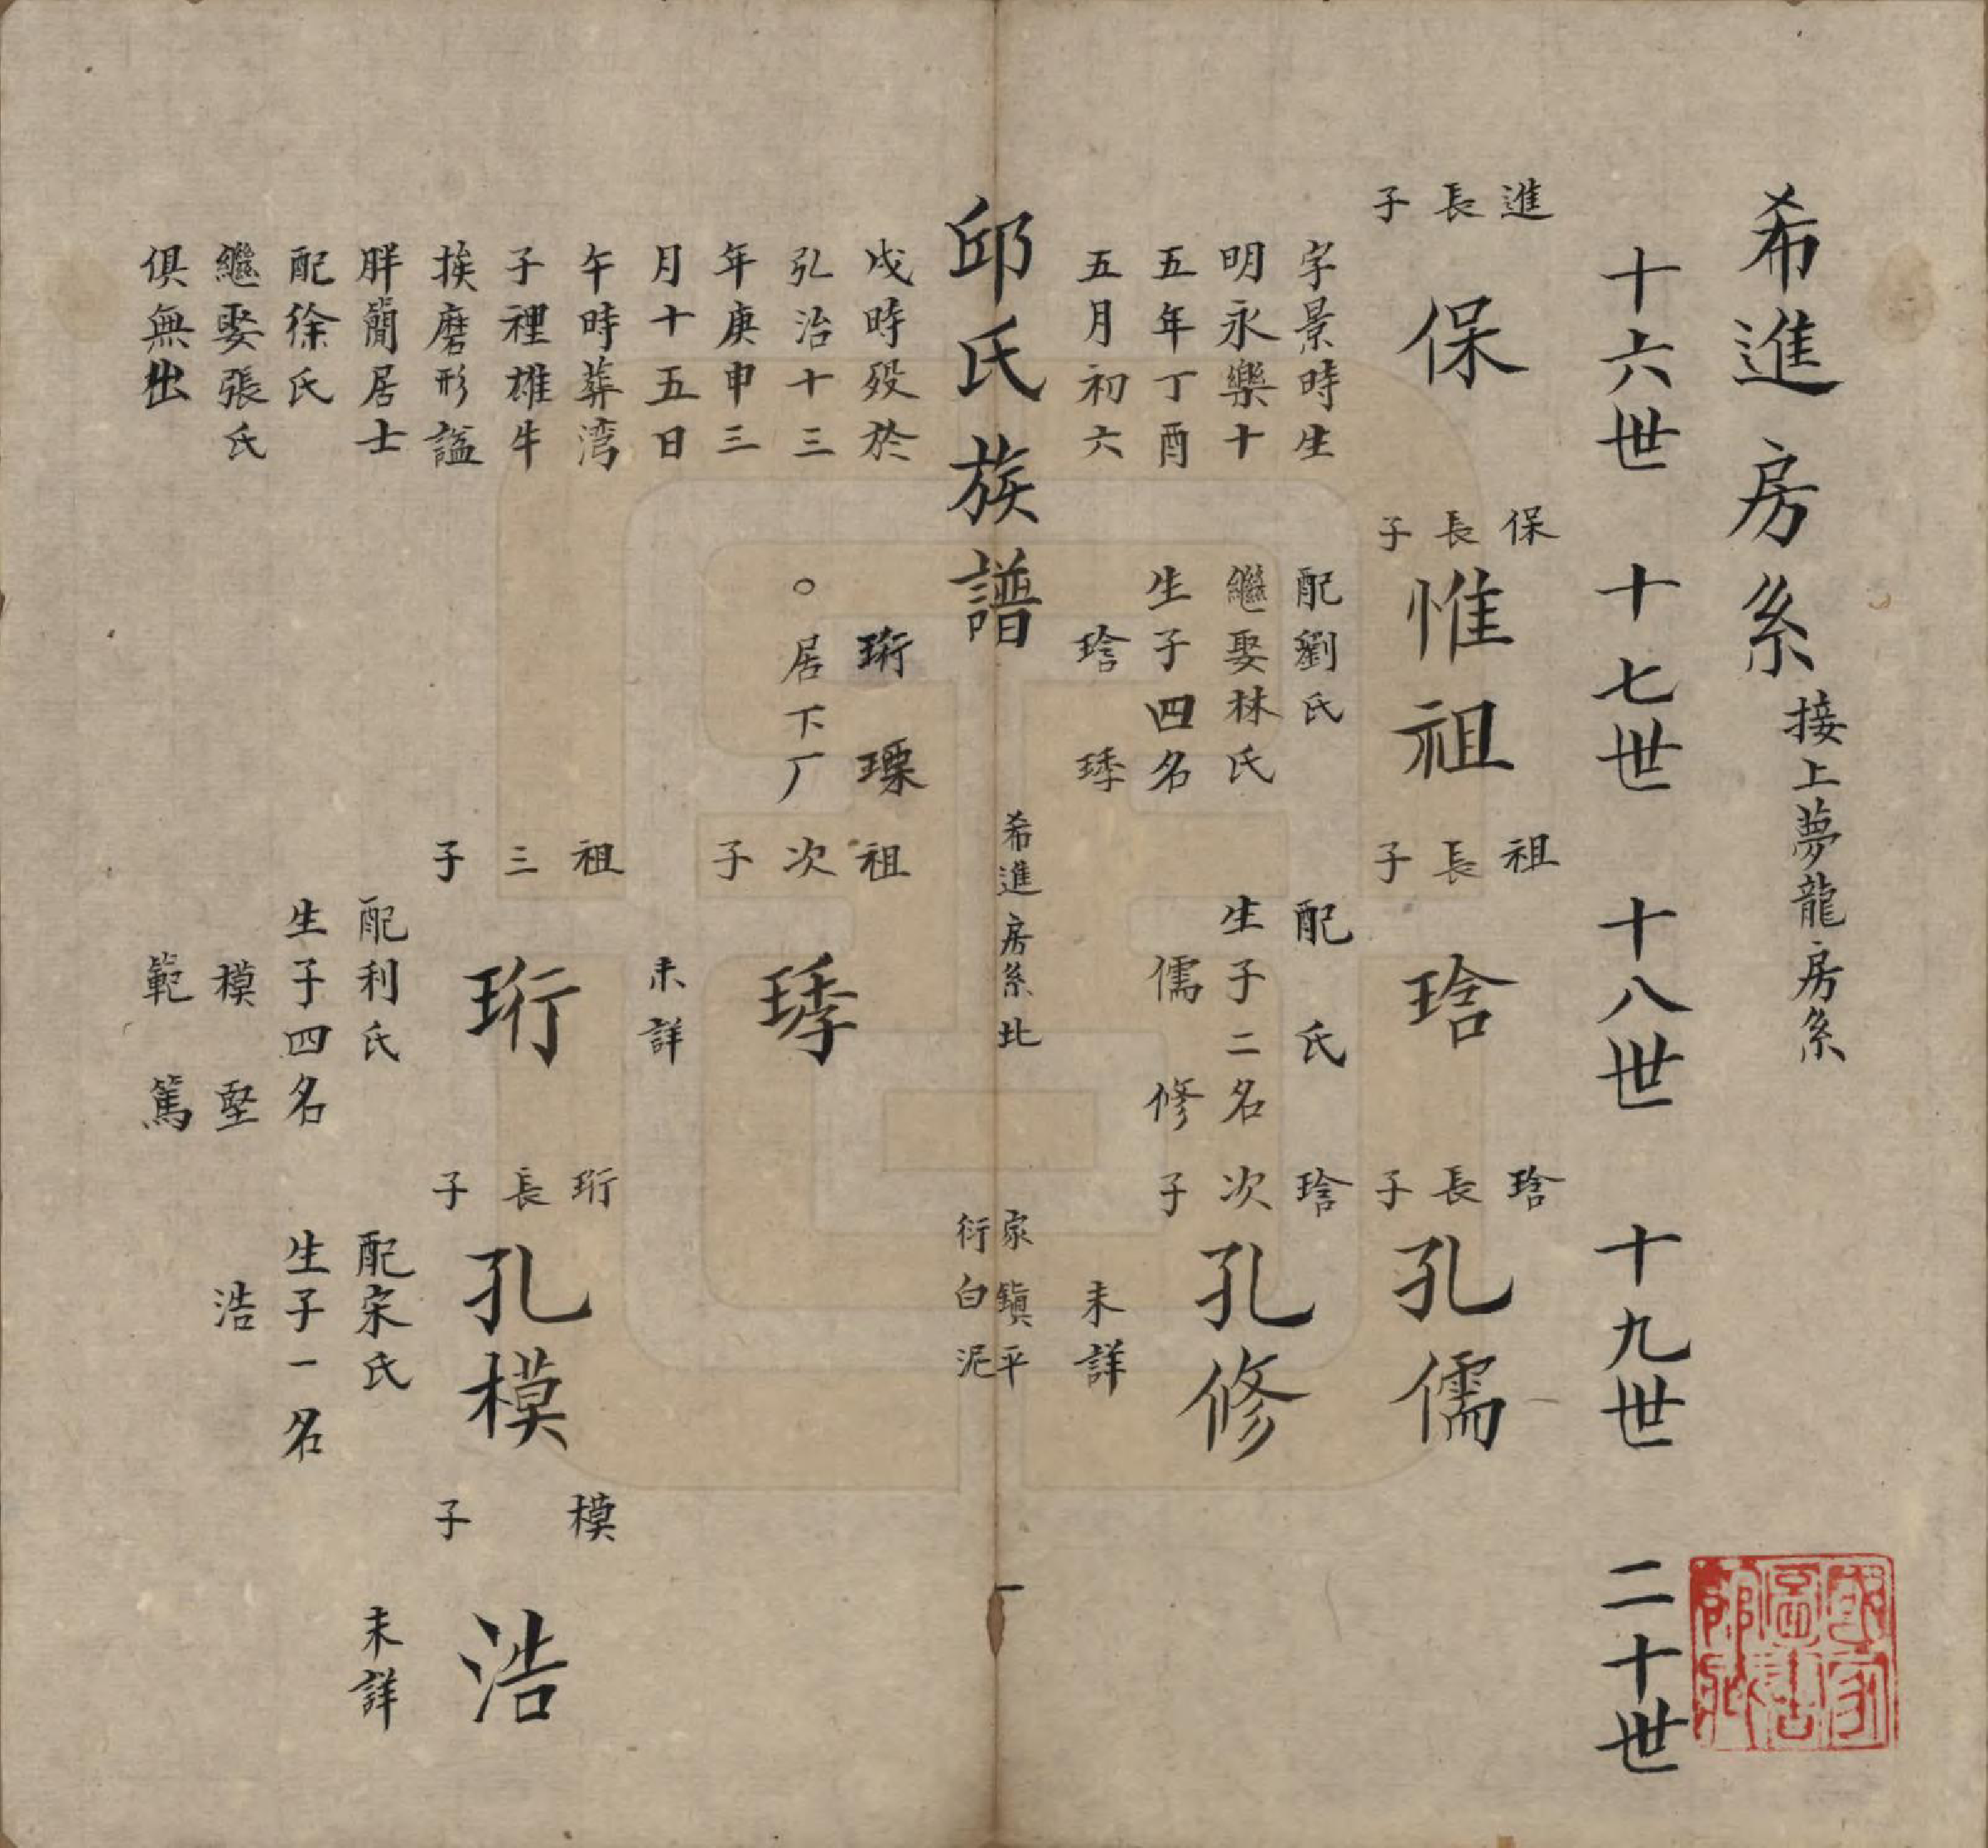 希進房系接上夢龍房系
十六世
十七世
十八世
十九世
二十世
進長子
保
字景時生
明永樂十
五年丁酉
五月初六
戌時殁於
弘治十三
年庚申三
月十五日
午時葬湾
子裡雄牛
挨磨形諡
胖簡居士
配徐氏
繼娶張氏
俱無出
保長子
惟祖
配劉氏
繼娶林氏
生子四名
琀 琗
珩 瑮
。居下厂
祖長子
琀
配 氏
生子二名
儒 修
祖次子
未詳
祖三子
珩
配利氏
生子四名
模 堅
範 篤
琀長子
孔儒
琀次子
孔修
未詳
珩長子
孔模
配宋氏
生子一名
浩
模 子
浩
未詳
邱氏族譜
希進房系北
家鎮平
衍白泥
一